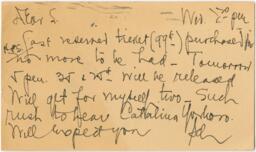 Dear L Wed. 7 pm
Last reserved ticket (99¢) purchased
no more to be had - Tomorrow
5 pm. 25 & will be released
Will get for myself two - Such
rush to hear Catalina
Will expect you